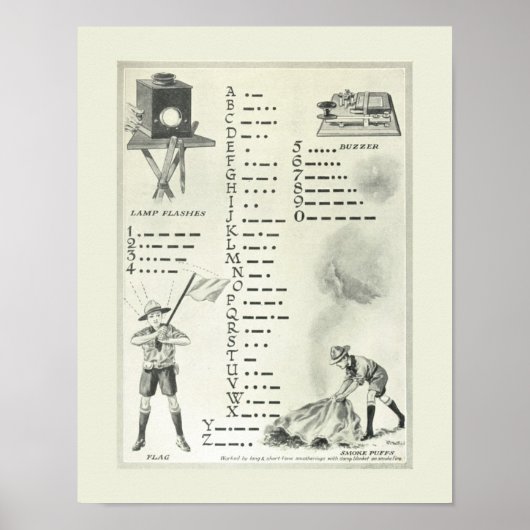 A
B
C
D
E
F
G
H
I
J
K
L
M
N
O
P
Q
R
S
T
U
V
W
X
Y
Z
LAMP FLASHES
1
2
3
4
BUZZER
5
6
7
8
9
0
FLAG
SMOKE PUFFS
Worked by long & short time smotherings with damp blanket on smoke fire